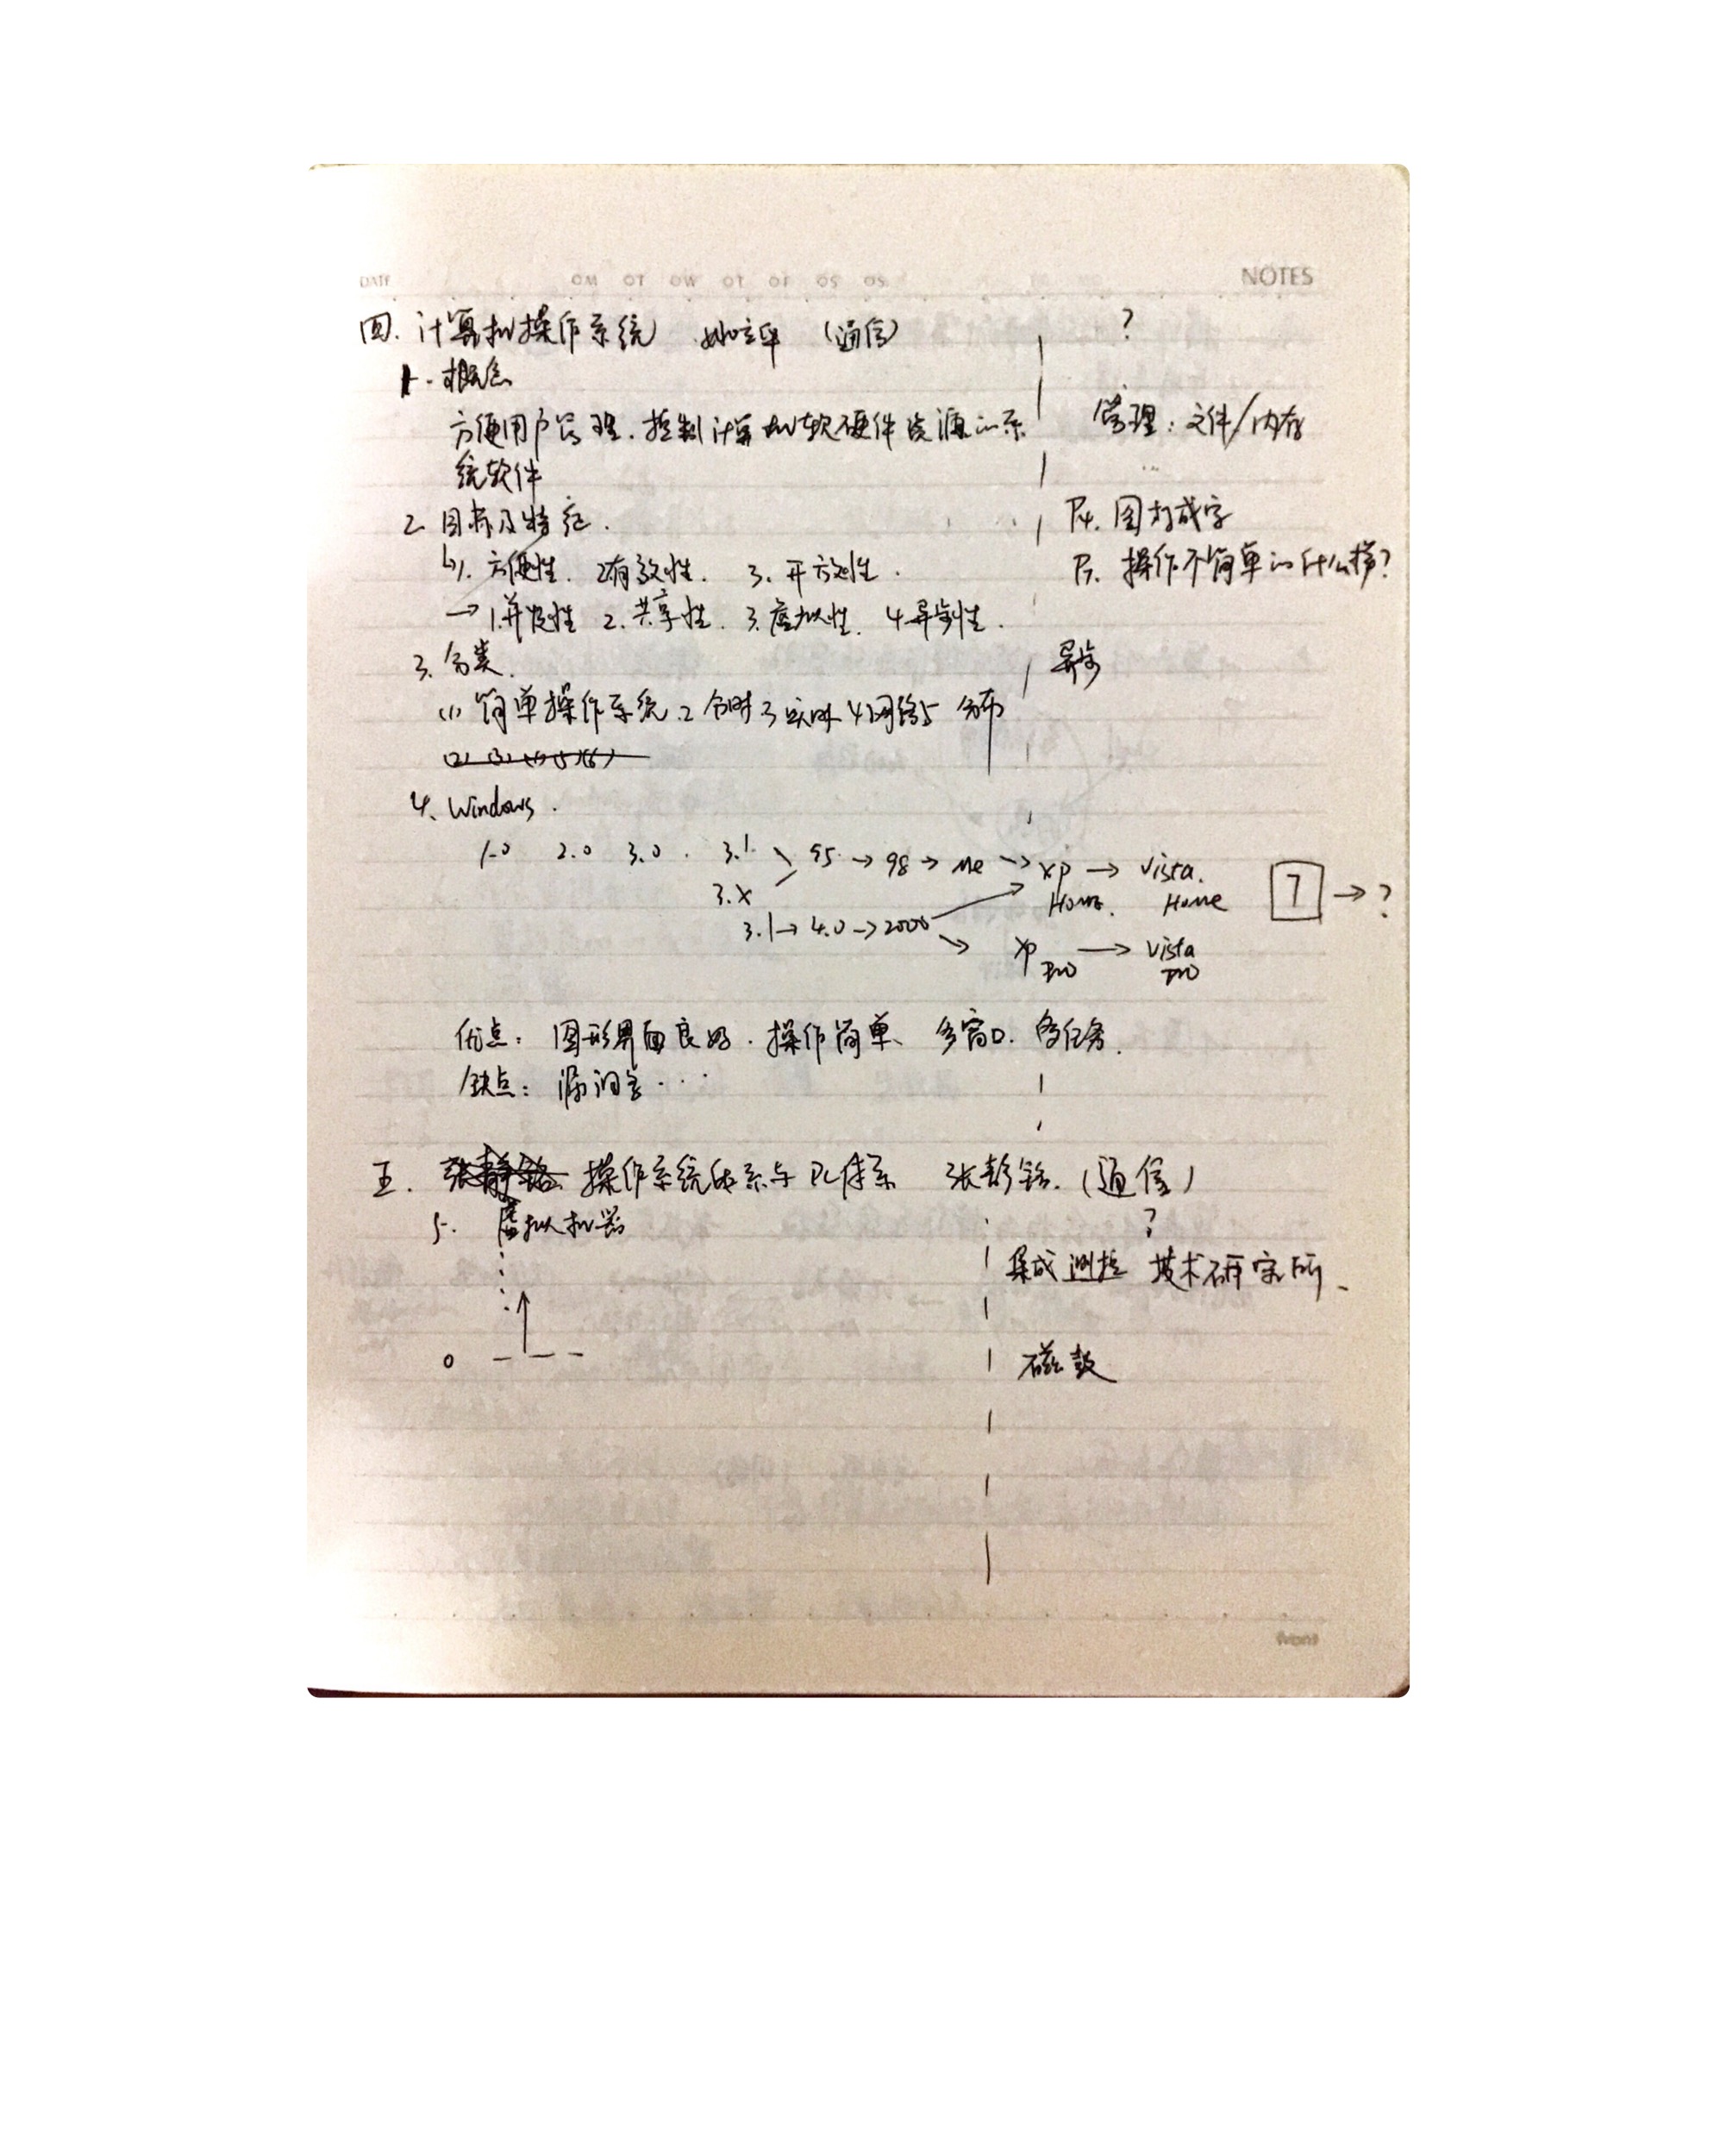 DATE MO TO WO TO FO SO SO NOTES
四. 计算机操作系统 姚立平 (通信) ?
1. 概念
方便用户管理.控制计算机软硬件资源的系 管理:文件/内存
统软件
2 目标及特征. P4. 图打成字
↳1. 方便性. 2有效性. 3. 开放性. P7. 操作不简单的什么样?
→1.并发性 2.共享性. 3.虚拟性. 4.异步性.
3. 分类. 异步
(1) 简单操作系统.2 分时 3 实时 4 网络 5 分布
(2) (3) (4) (5) (6)
4. Windows.
1.0 2.0 3.0. 3.1 95. → 98 → Me → XP → Vista.
3.X Home. Home 7 → ?
3.1 → 4.0 → 2000
→ XP → Vista
Pro Pro
优点: 图形界面良好.操作简单、多窗口.多任务.
缺点: 漏洞多...
五. 操作系统体系与PC体系 张彭铭.(通信)
5. 虚拟机器 ?
集成测控 技术研究所.
0 磁鼓